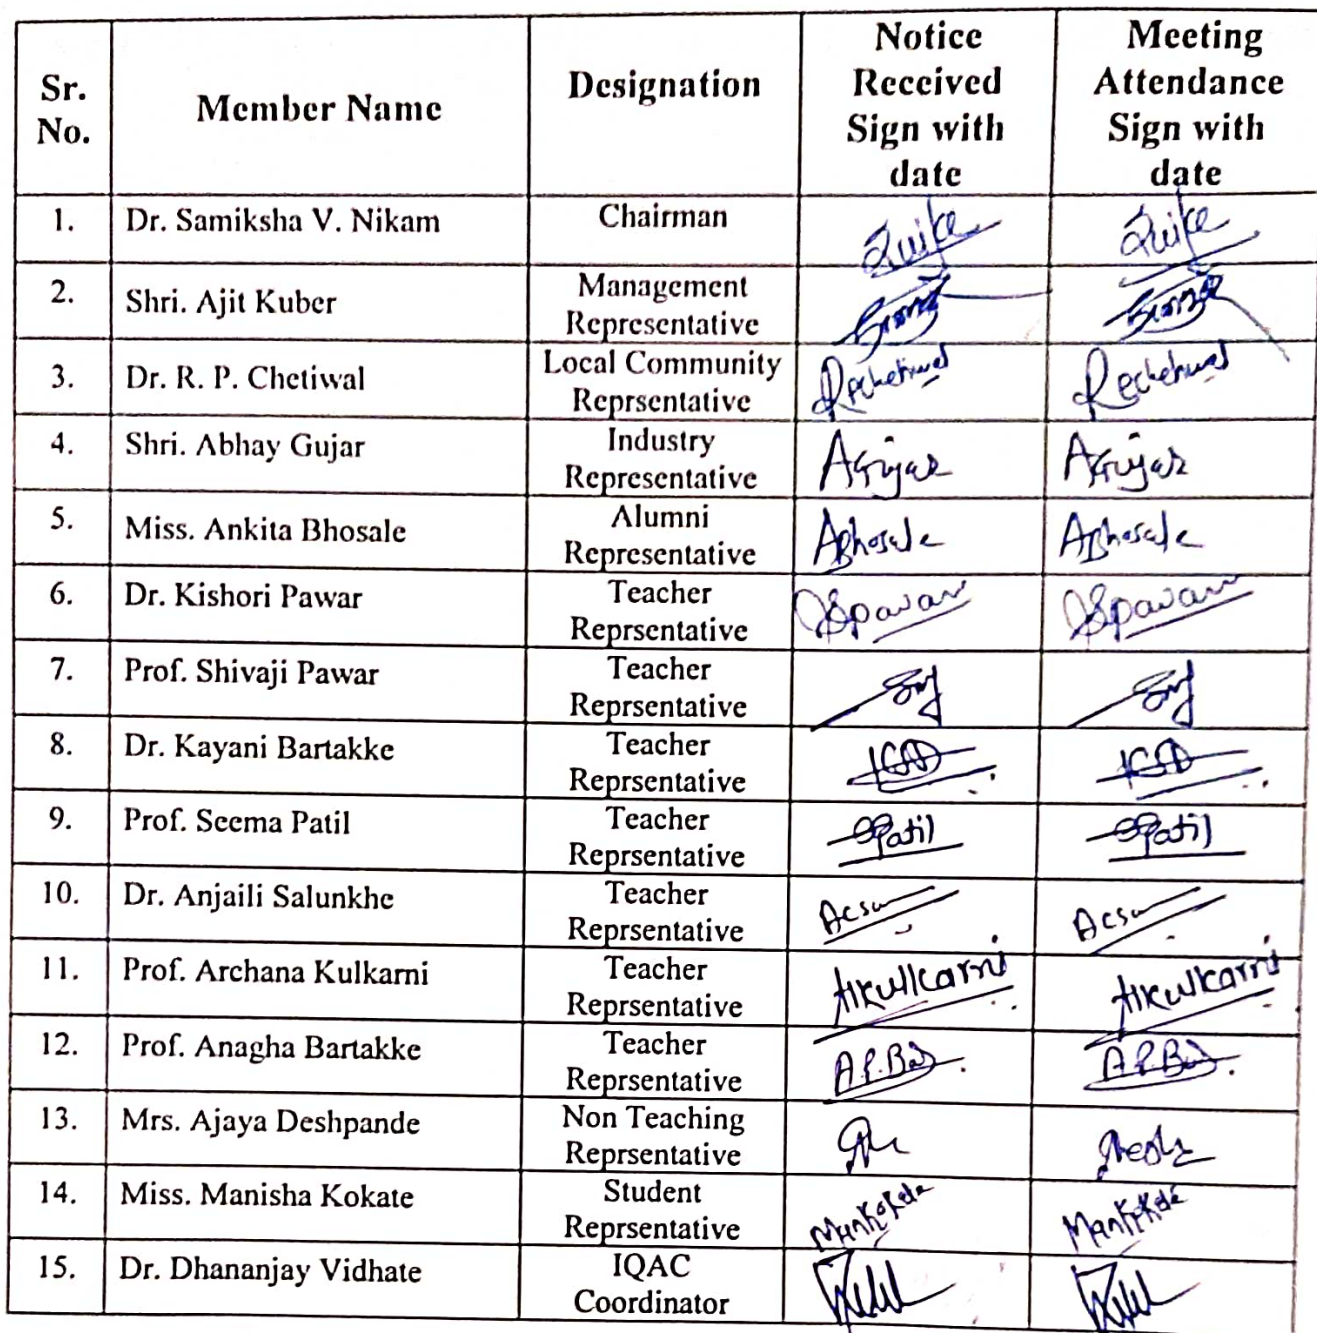 Sr. No.
Member Name
Designation
Notice Received Sign with date
Meeting Attendance Sign with date
1. Dr. Samiksha V. Nikam Chairman
2. Shri. Ajit Kuber Management Representative
3. Dr. R. P. Chetiwal Local Community Reprsentative Rpchetiwal Rpchetiwal
4. Shri. Abhay Gujar Industry Representative AGujar AGujar
5. Miss. Ankita Bhosale Alumni Representative ABhosale ABhosale
6. Dr. Kishori Pawar Teacher Reprsentative
7. Prof. Shivaji Pawar Teacher Reprsentative
8. Dr. Kayani Bartakke Teacher Reprsentative
9. Prof. Seema Patil Teacher Reprsentative SPatil SPatil
10. Dr. Anjaili Salunkhe Teacher Reprsentative
11. Prof. Archana Kulkarni Teacher Reprsentative AKulkarni AKulkarni
12. Prof. Anagha Bartakke Teacher Reprsentative
13. Mrs. Ajaya Deshpande Non Teaching Reprsentative
14. Miss. Manisha Kokate Student Reprsentative
15. Dr. Dhananjay Vidhate IQAC Coordinator